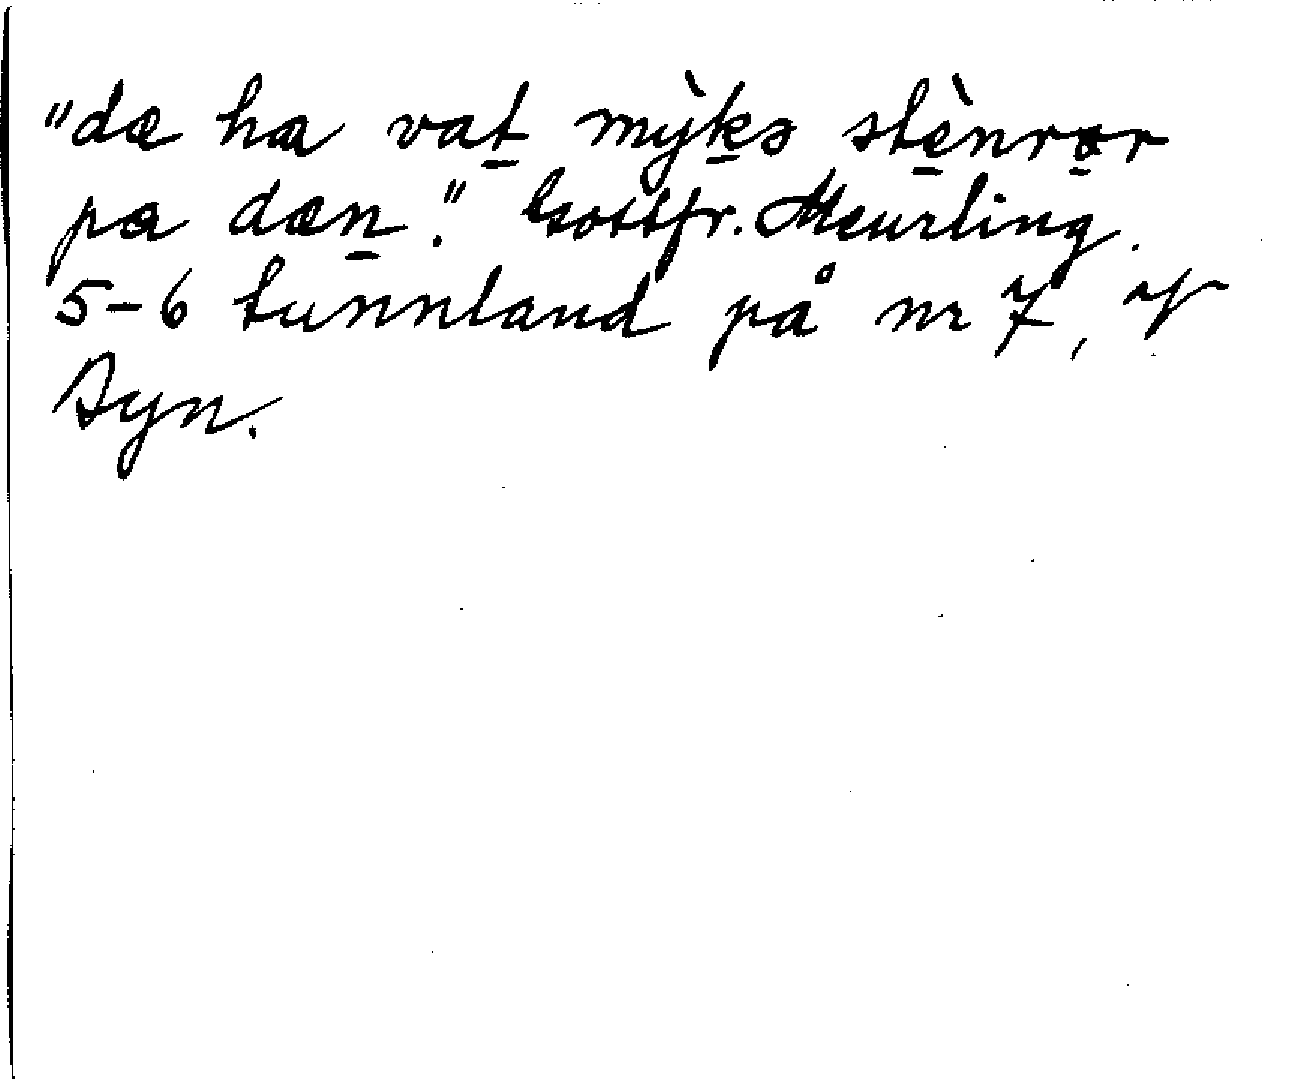 "dæ ha vat̲ mỳk̲ə stè̲nrə̲r
pa dæn̲." Gottfr. Meurling.
5-6 tunnland på nr 7, af
Syn.